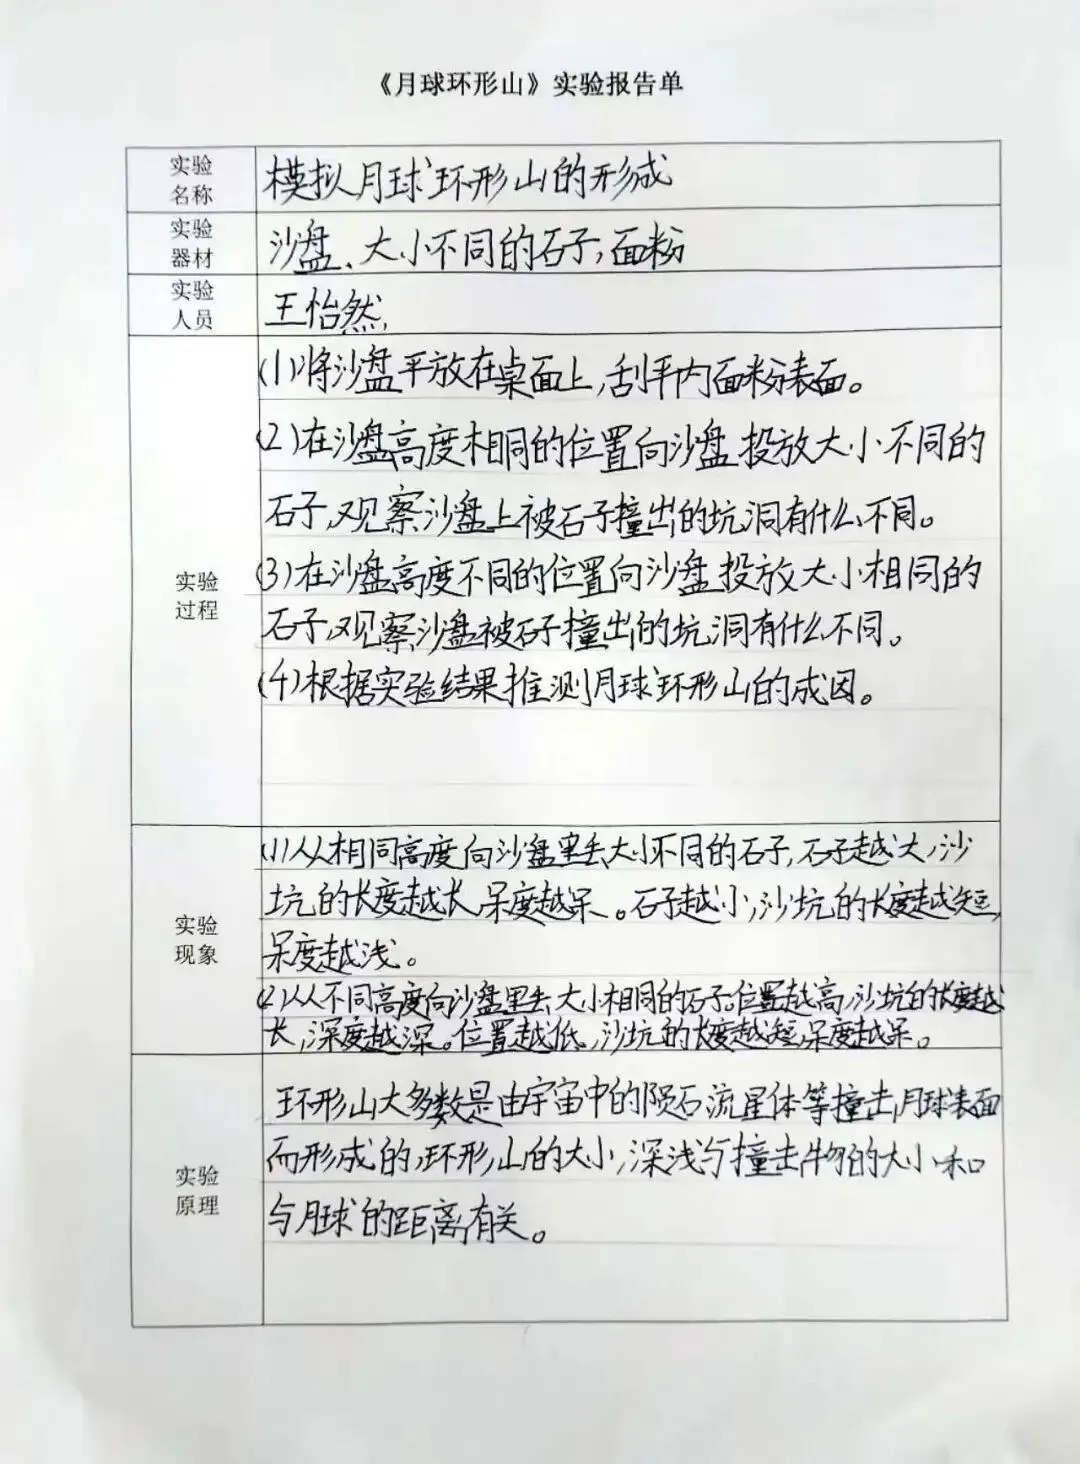 《月球环形山》实验报告单
实验
名称
模拟月球环形山的形成
实验
器材
沙盘、大小不同的石子,面粉
实验
人员
王怡然
实验
过程
(1)将沙盘平放在桌面上,刮平内面粉表面。
(2)在沙盘高度相同的位置向沙盘投放大小不同的
石子,观察沙盘上被石子撞出的坑洞有什么不同。
(3)在沙盘高度不同的位置向沙盘投放大小相同的
石子,观察沙盘被石子撞出的坑洞有什么不同。
(4)根据实验结果推测月球环形山的成因。
实验
现象
(1)从相同高度向沙盘里丢大小不同的石子,石子越大,沙
坑的长度越长,呆度越呆。石子越小,沙坑的长度越短,
呆度越浅。
(2)从不同高度向沙盘里丢大小相同的石子。位置越高,沙坑的长度越
长,深度越深。位置越低,沙坑的长度越短,呆度越呆。
实验
原理
环形山大多数是由宇宙中的陨石流星体等撞击月球表面
而形成的,环形山的大小,深浅与撞击物的大小和
与月球的距离有关。